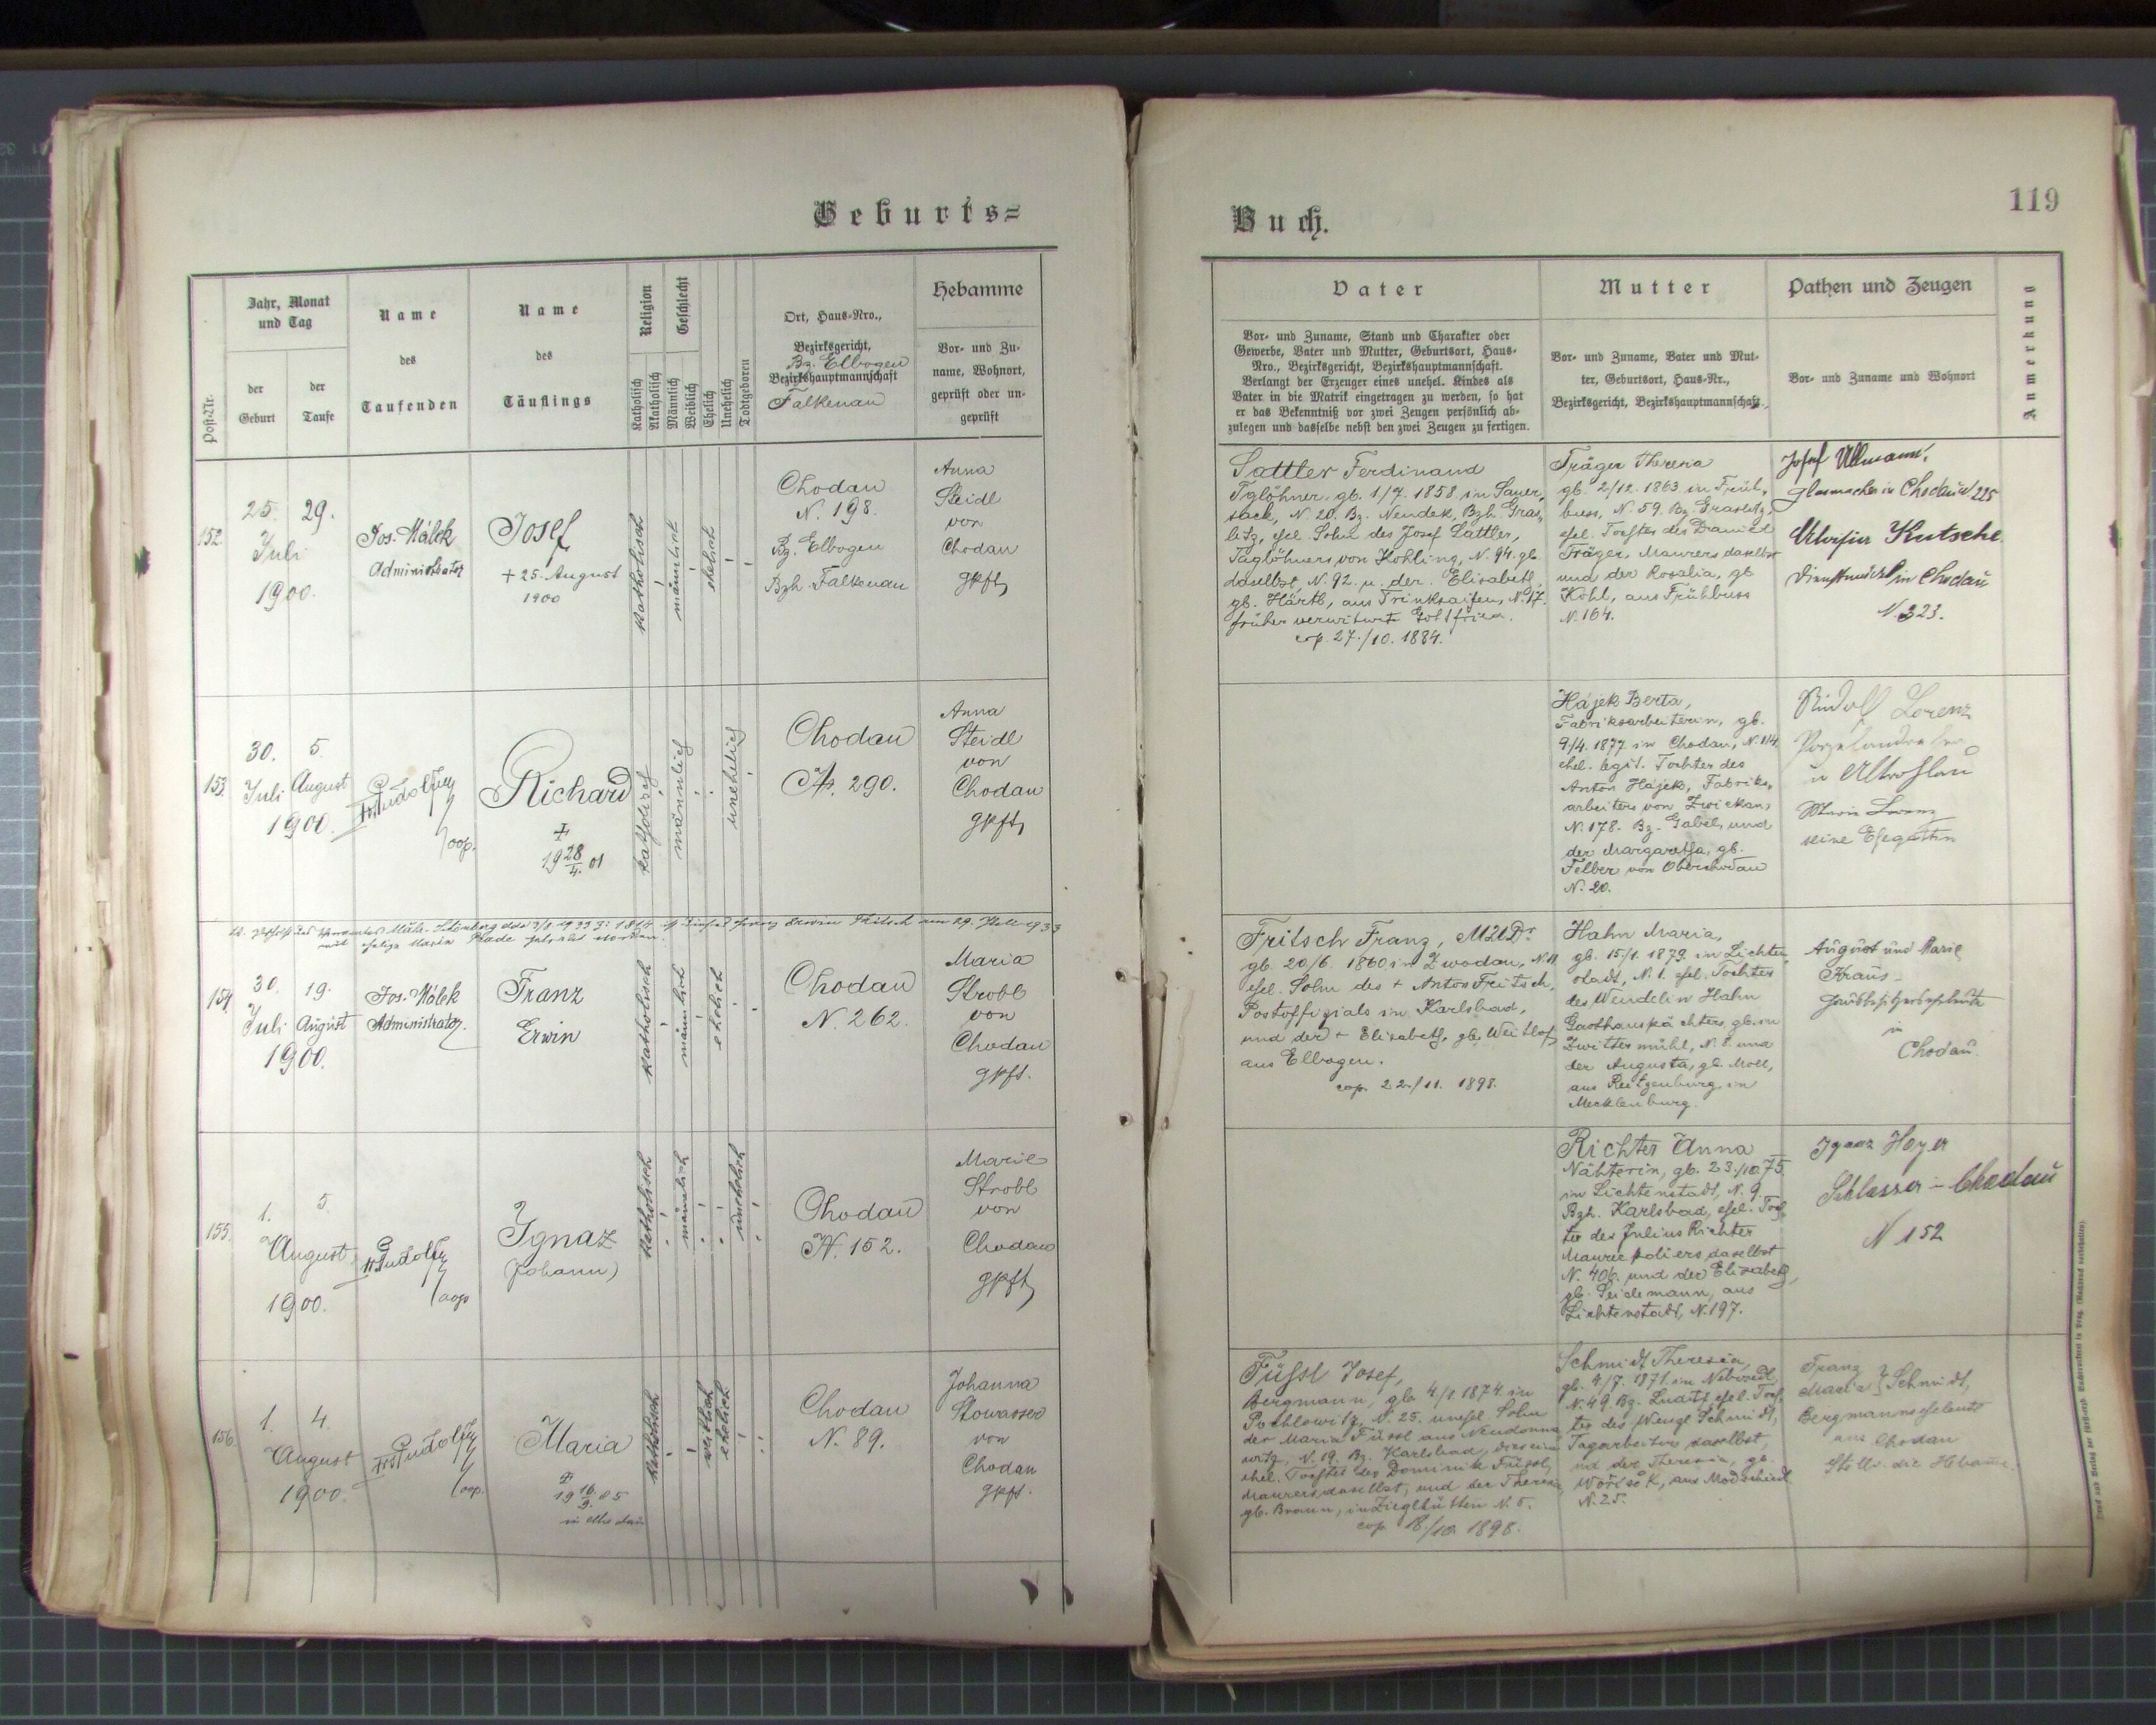 Geburts=
Buch.
119
Post-Nr.
Jahr, Monat
und Tag
der
Geburt
der
Taufe
Name
des
Taufenden
Name
des
Täuflings
Religion
Katholisch
Akatholisch
Geschlecht
Männlich
Weiblich
Ehelich
Unehelich
Todtgeboren
Ort, Haus-Nro.,
Bezirksgericht,
Bz. Elbogen
Bezirkshauptmannschaft
Falkenau
Hebamme
Vor- und Zu-
name, Wohnort,
geprüft oder un-
geprüft
Vater
Vor- und Zuname, Stand und Charakter oder
Gewerbe, Vater und Mutter, Geburtsort, Haus-
Nro., Bezirksgericht, Bezirkshauptmannschaft.
Verlangt der Erzeuger eines unehel. Kindes als
Vater in die Matrik eingetragen zu werden, so hat
er das Bekenntniß vor zwei Zeugen persönlich ab-
zulegen und dasselbe nebst den zwei Zeugen zu fertigen.
Mutter
Vor- und Zuname, Vater und Mut-
ter, Geburtsort, Haus-Nr.,
Bezirksgericht, Bezirkshauptmannschaft.
Pathen und Zeugen
Vor- und Zuname und Wohnort
Anmerkung
152.
25. 29.
Juli
1900.
Jos. Málek
Administrator
Josef
+ 25. August
1900
katholisch
männlich
ehelich
Chodau
N. 198.
Bz. Elbogen
Bzh. Falkenau
Anna
Steidl
von
Chodau
gpft
Sattler Ferdinand
Tglöhner, gb. 1/7. 1858 in Sauer,
sack, N. 20. Bz. Neudek, Bzh. Gras,
litz, ehel. Sohn des Josef Sattler,
Taglöhners von Kohling, N. 94. gb.
daselbst, N. 92. u. der Elisabeth,
gb. Härtl, aus Trinksaifen, N. 17.
früher verwitwete
cop. 27./10. 1884.
Träger Theresia
gb. 2/12. 1863 in Früh,
buss, N. 59. Bz. Graslitz,
ehel. Tochter des Daniel
Träger, Maurers daselbst
und der Rosalia, gb.
Kohl, aus Frühbuss
N. 164.
Josef Ullmann,
Glasmacher in Chodau N 225
Kutsche
in Chodau
N. 323.
153.
30. 5.
Juli August
1900.
coop.
Richard
+
19 28/4. 01
katholisch
männlich
unehelich
Chodau
N. 290.
Anna
Steidl
von
Chodau
gpft
Hájek Berta,
Fabriksarbeiterin, gb.
9/4. 1877 in Chodau, N. 114.
ehel. legit. Tochter des
Anton Hájek, Fabriks,
arbeiters von Zwickau,
N. 178. Bz. Gabel, und
der Margaretha, gb.
Felber von Oberchodau
N. 20.
Rudolf Lorenz
Porzelandreher
in Altrohlau
Marie Lorenz
seine Ehegattin
154.
30. 19.
Juli August
1900.
Jos. Málek
Administrator
Franz
Erwin
katholisch
männlich
ehelich
Chodau
N. 262.
Maria
Strobl
von
Chodau
gpft.
Fritsch Franz, MUDr.
gb. 20/6. 1860 in Zwodau, N. 11.
ehel. Sohn des + Anton Fritsch,
Postoffizials in Karlsbad,
und der + Elisabeth, gb. Weitlof
aus Elbogen.
cop. 22./11. 1898.
Hahn Maria,
gb. 15/1. 1879 in Lichten,
stadt, N. 1. ehel. Tochter
des Wendelin Hahn
Gasthauspächters, gb. in
Zwittermühl, N. 8. und
der Augusta, gb. Moll,
aus Reitzenburg, in
Mecklenburg.
August und Marie
Kraus
in
Chodau.
155.
1. 5.
August
1900.
coop
Ignaz
(Johann)
katholisch
männlich
unehelich
Chodau
N. 152.
Marie
Strobl
von
Chodau
gpft
Richter Anna
Nähterin, gb. 23./10. 75
in Lichtenstadt, N. 9.
Bzh. Karlsbad, ehel. Toch,
ter des Julius Richter
Maurerpoliers daselbst
N. 406. und der Elisabeth,
gb. Seidemann, aus
Lichtenstadt, N. 197.
Ignaz Hoyer
Schlosser in Chodau
N 152
156.
1. 4.
August
1900.
coop.
Maria
+
19 16/9. 05
in Chodau
katholisch
weiblich
ehelich
Chodau
N. 89.
Johanna
Stowasser
von
Chodau
gpft.
Füssl Josef,
Bergmann, gb. 4/1. 1874 in
Pochlowitz, N. 25. unehel. Sohn
der Maria Füssl aus Neudonna
witz, N. 19. Bz. Karlsbad, dies eine
ehel. Tochter des Dominik Füssl,
Maurers daselbst, und der Theresia
gb. Braun, in Ziegelhütten N. 5.
cop. 18./10. 1898.
Schmidt Theresia,
gb. 4/7. 1871 in
N. 49. Bz. Luditz, ehel. Toch,
ter des Wenzl Schmidt,
Tagarbeiters daselbst,
und der Theresia, gb.
Wořisek, aus Modschiedl
N. 25.
Franz
Maria } Schmidt,
Bergmannseheleute
aus Chodau
Stellv. die Hebamme.